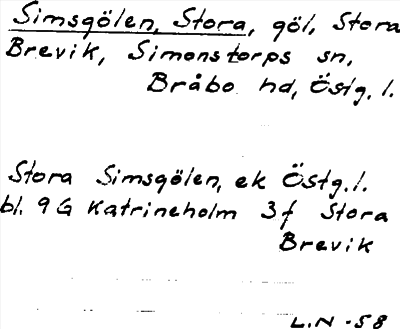 Simsgölen, Stora, göl, Stora
Brevik, Simonstorps sn,
Bråbo hd, Östg. l.
Stora Simsgölen, ek Östg. l.
bl. 9 G Katrineholm 3f Stora
Brevik
L.N -58